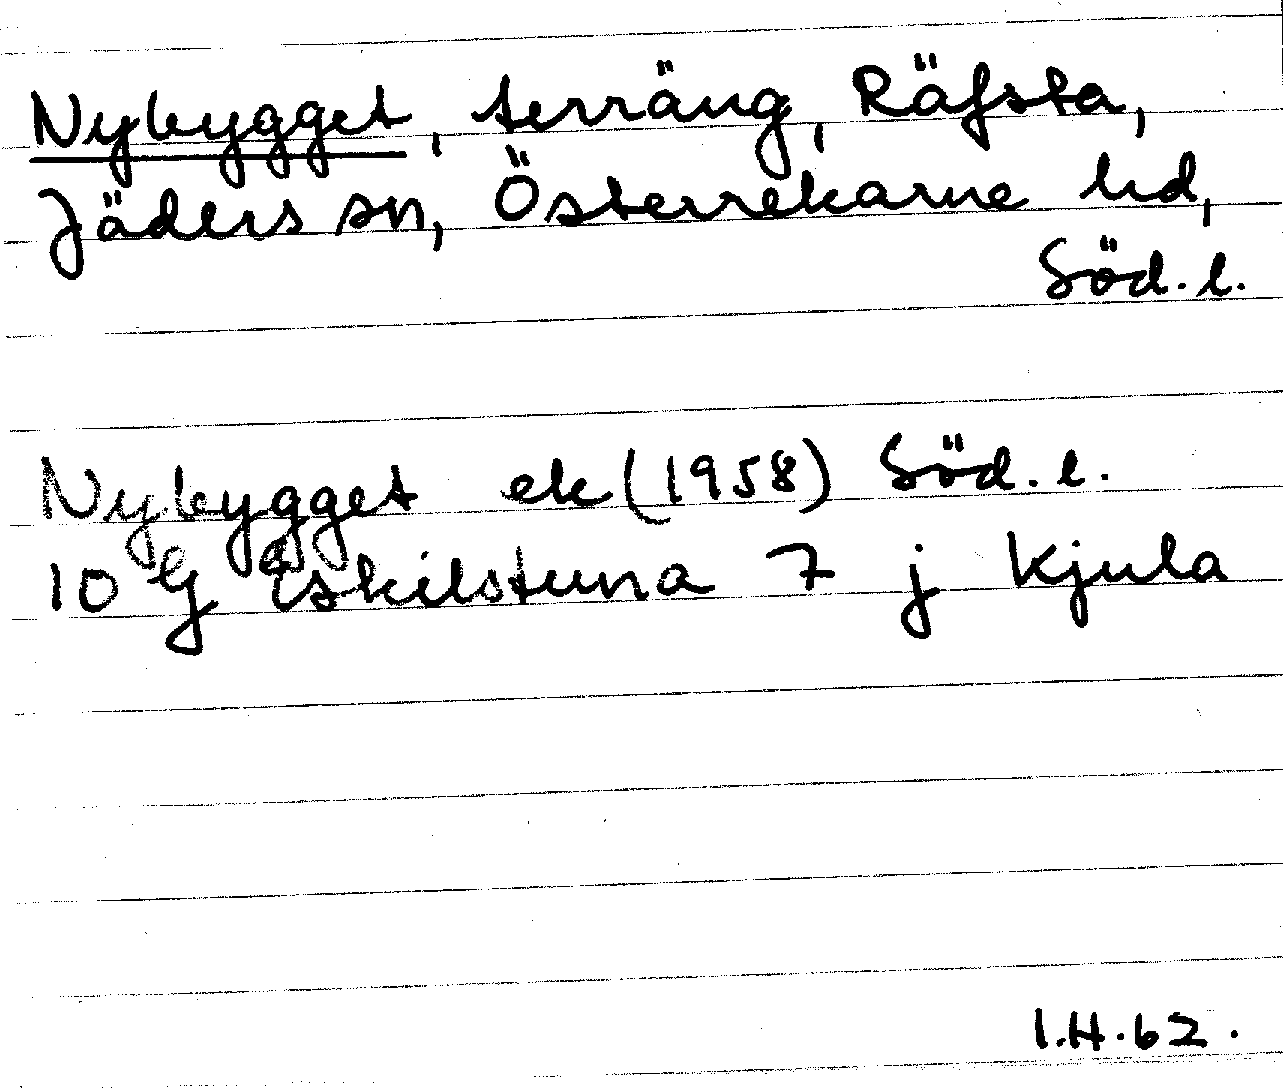 Nybygget, terräng, Räfsta,
Jäders sn, Österrekarne hd,
Söd. l.
Nybygget ek (1958) Söd. l.
10 G Eskilstuna 7 j Kjula
I.H. 62.